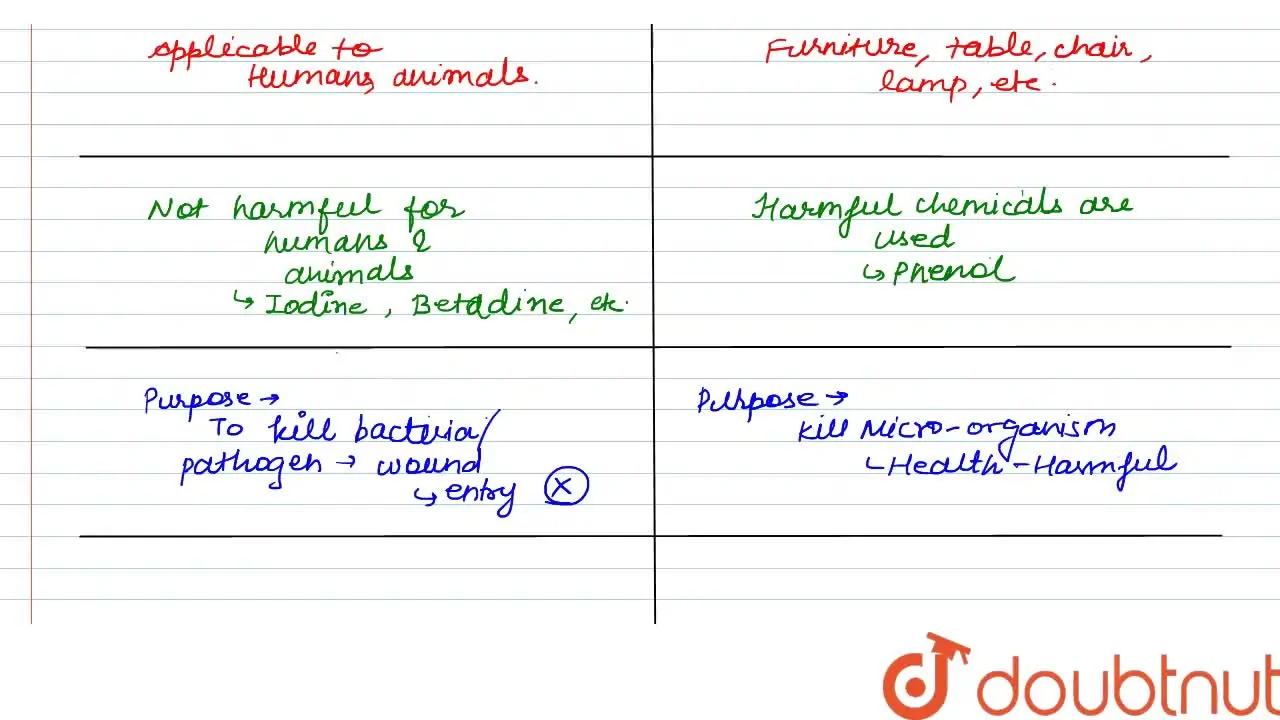 applicable to
Humans, animals.
Furniture, table, chair,
lamp, etc.
Not harmful for
humans &
animals
↳ Iodine, Betadine, etc.
Harmful chemicals are
used
↳ Phenol
Purpose →
To kill bacteria/
pathogen → wound
↳ entry X
Purpose →
Kill Micro-organism
↳ Health-Harmful
doubtnut